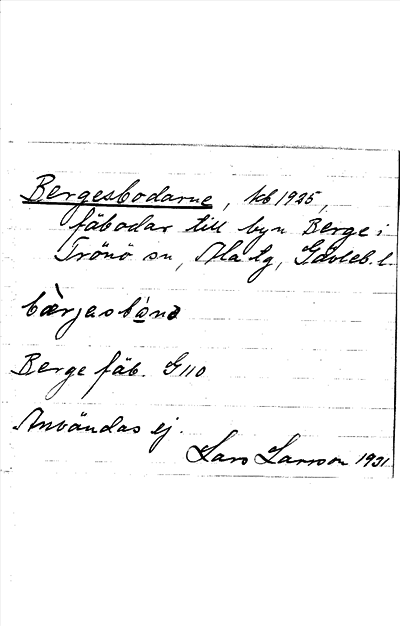 Bergesbodarne, kb 1925,
fäbodar till byn Berge i
Trönö sn, Ala tg, Gävleb. l
bæ̀rjasbṓna
Berge fäb. G110
Användas ej.
Lars Larsson 1931